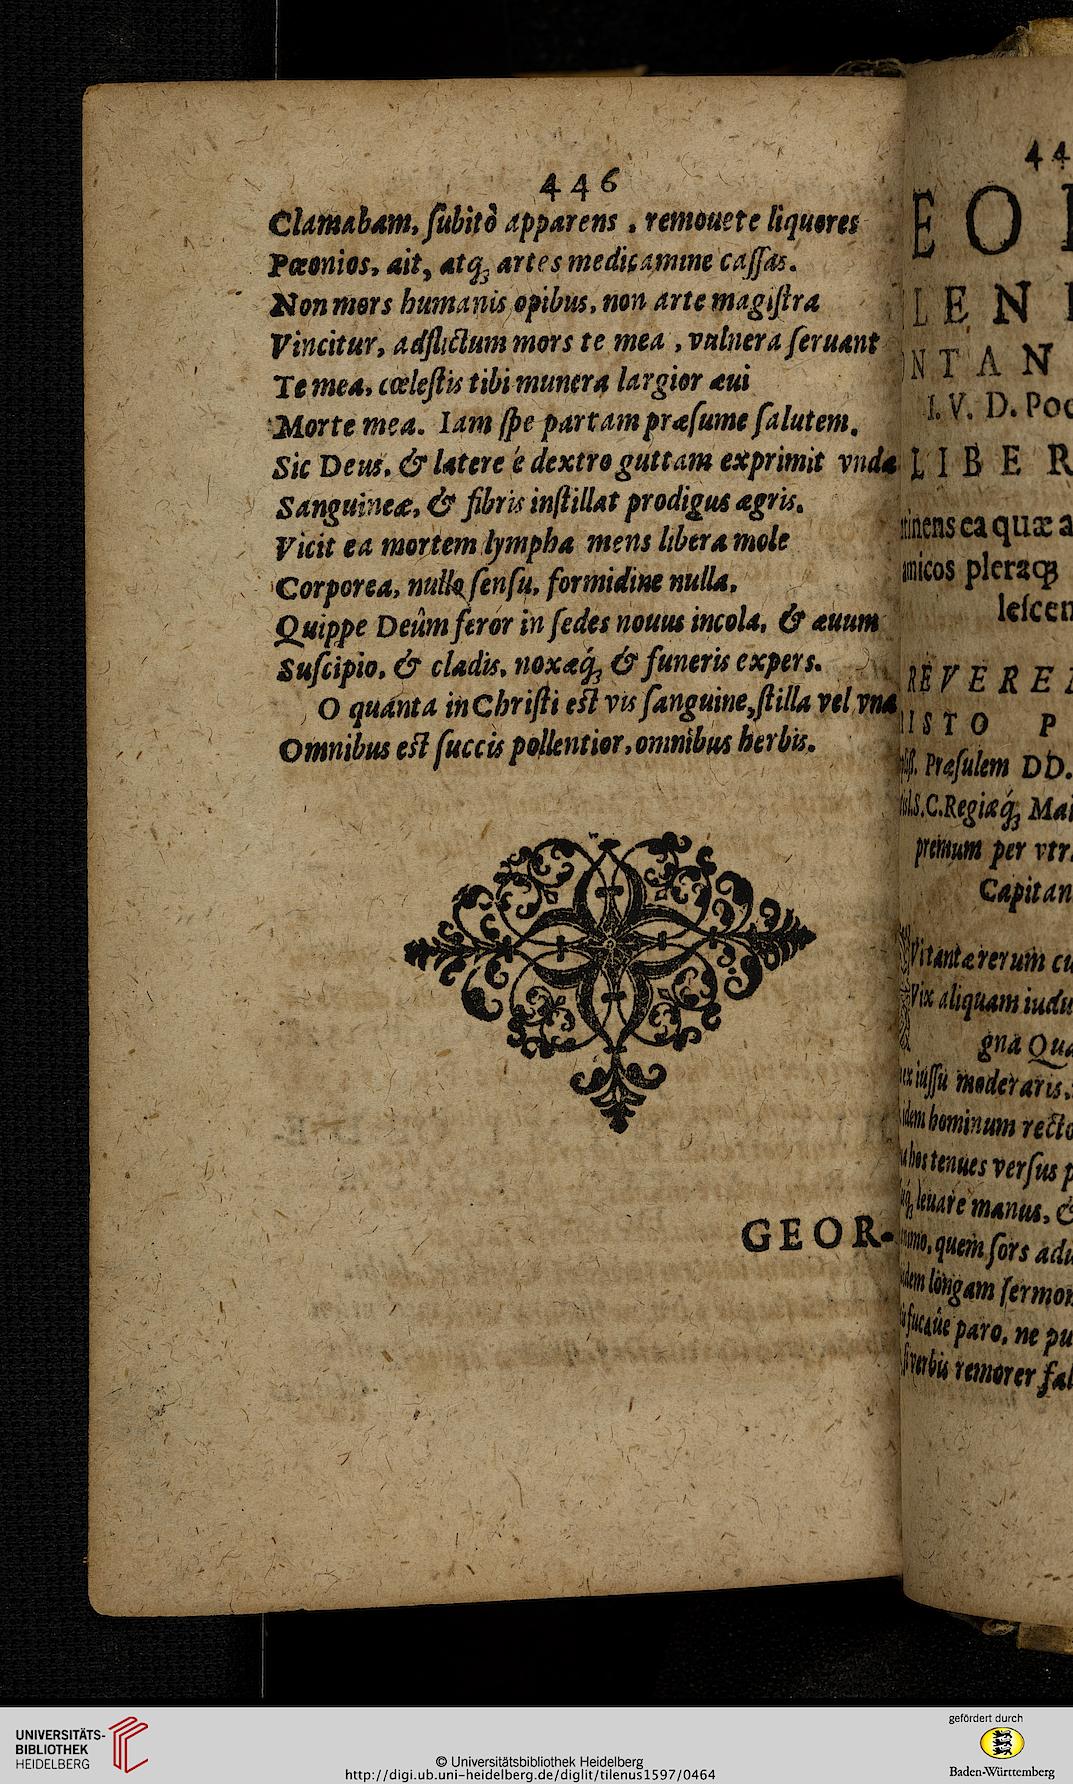 446
Clamabam, ſubitò apparens, remouete liquores
Pæonios, ait, atq́; artes medicamine caſſas.
Non mors humanis opibus, non arte magiſtra
Vincitur, adflictum mors te mea, vulnera ſeruant
Te mea, cœleſtis tibi munera largior æui
Morte mea. Iam ſpe partam præſume ſalutem.
Sic Deus, & latere è dextro guttam exprimit vndæ
Sanguineæ, & fibris inſtillat prodigus ægris.
Vicit ea mortem lympha mens libera mole
Corporea, nullo ſenſu, formidine nulla,
Quippe Deûm feror in ſedes nouus incola, & æuum
Suſcipio, & cladis, noxæq́; & funeris expers.
O quanta in Chriſti eſt vis ſanguine, ſtilla vel vna
Omnibus eſt ſuccis pollentior, omnibus herbis.
GEOR-
44
EO
LEN
NTAN
I. V. D. Poe
LIBER
tinens ea quæ a
amicos pleraq́;
leſcen
REVEREN
ISTO P
Præſulem DD.
S. C. Regiæq́; Mai
premum per vtr
Capitan
Vitantæ rerum cu
Vix aliquam iudu
gna Qua
iuſſu moderaris,
idem hominum recto
hos tenues verſus p
leuare manus, &
quem ſors adu
longam ſermon
paro, ne pu
verbis remorer fal
UNIVERSITÄTS-
BIBLIOTHEK
HEIDELBERG
© Universitätsbibliothek Heidelberg
http://digi.ub.uni-heidelberg.de/diglit/tilenus1597/0464
gefördert durch
Baden-Württemberg